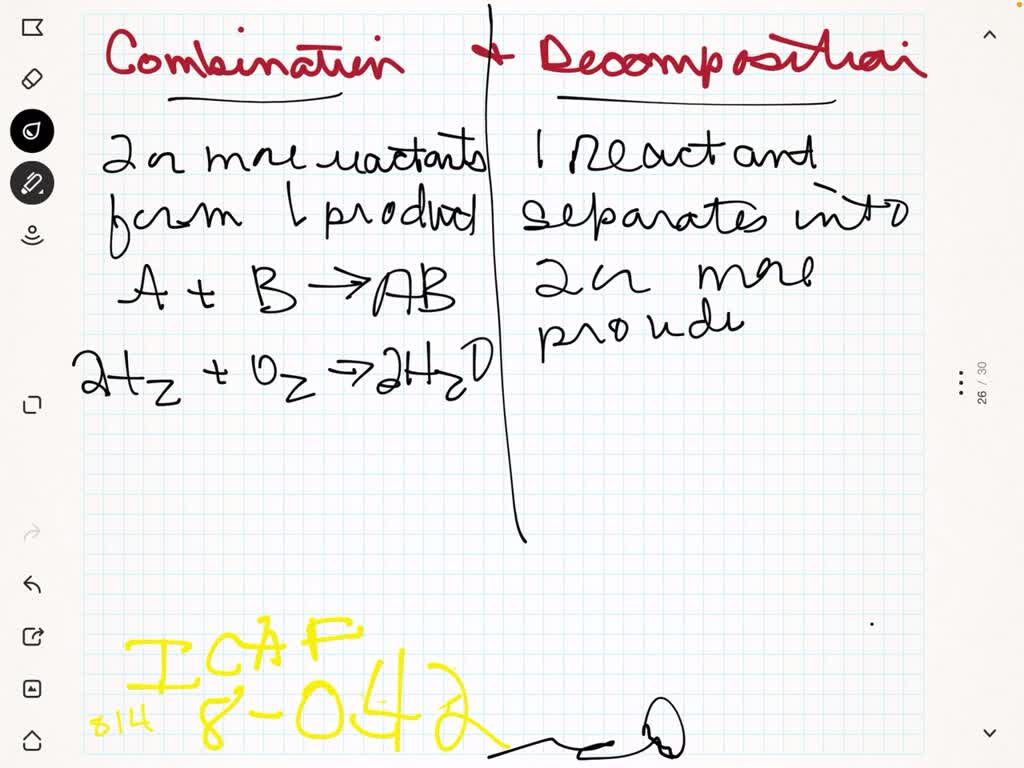 Combination + Decomposition
2 or more reactants
form 1 product
A + B → AB
2H2 + O2 → 2H2O
1 Reactant
separates into
2 or more
produ
ICAF
814 8-042
26 / 30